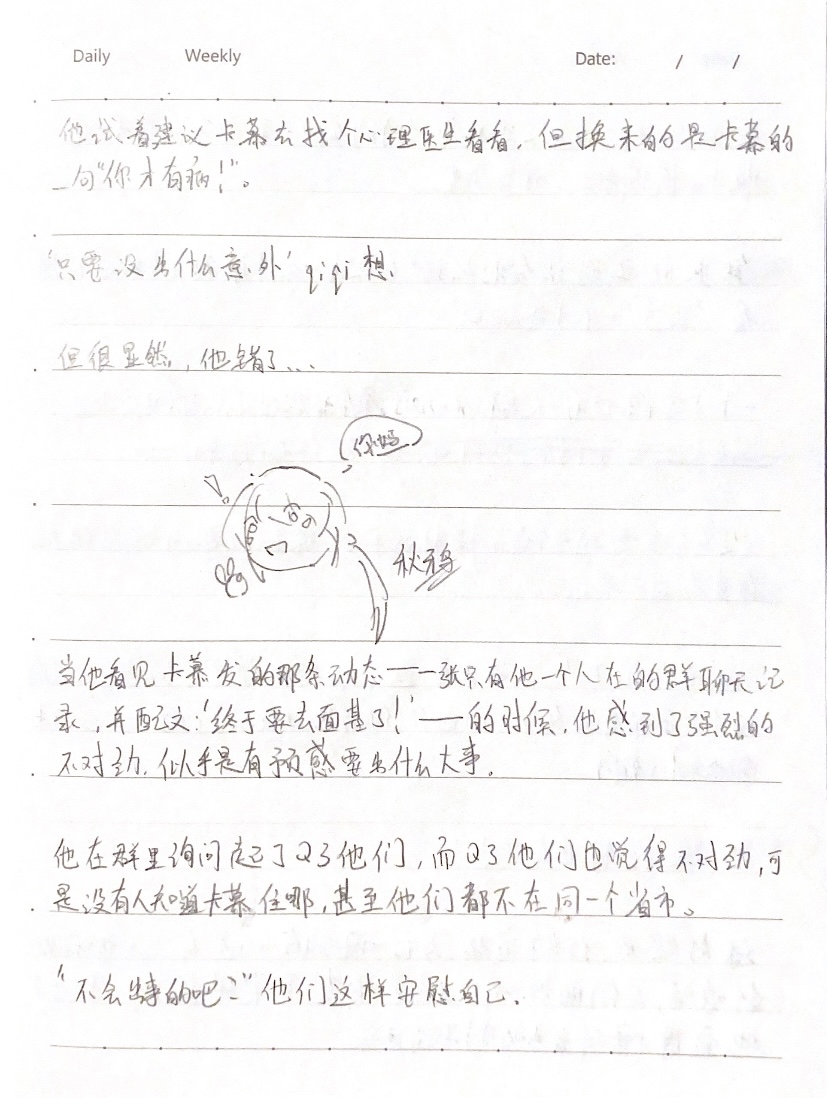 Daily Weekly Date: / /
他试着建议卡慕去找个心理医生看看，但换来的是卡慕的
一句“你才有病！”。
‘只要没出什么意外’qiqi想。
但很显然，他错了...
你妈
秋鸦
当他看见卡慕发的那条动态——一张只有他一个人在的群聊天记
录，并配文：‘终于要去面基了！’——的时候，他感到了强烈的
不对劲，似乎是有预感要出什么大事。
他在群里询问起了Q3他们，而Q3他们也觉得不对劲，可
是没有人知道卡慕住哪，甚至他们都不在同一个省市。
“不会出事的吧？”他们这样安慰自己。